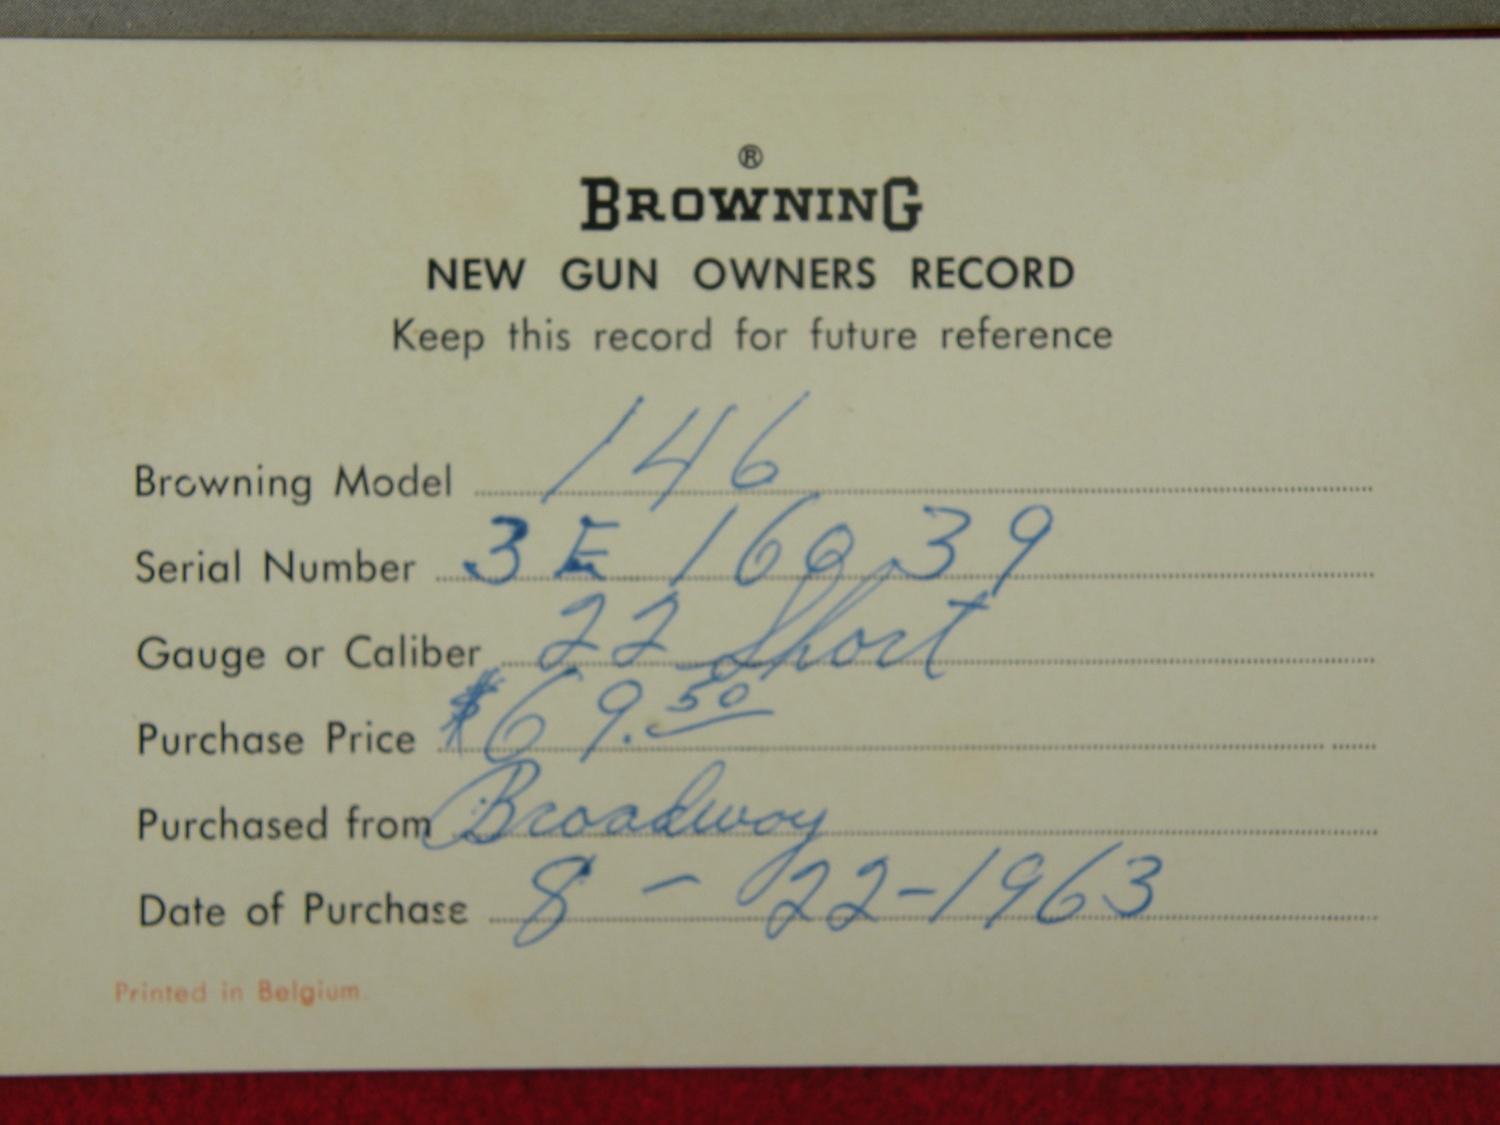 ®
BROWNING
NEW GUN OWNERS RECORD
Keep this record for future reference
Browning Model 146
Serial Number 3E 16039
Gauge or Caliber 22 Short
Purchase Price $69.50
Purchased from Broadway
Date of Purchase 8-22-1963
Printed in Belgium.